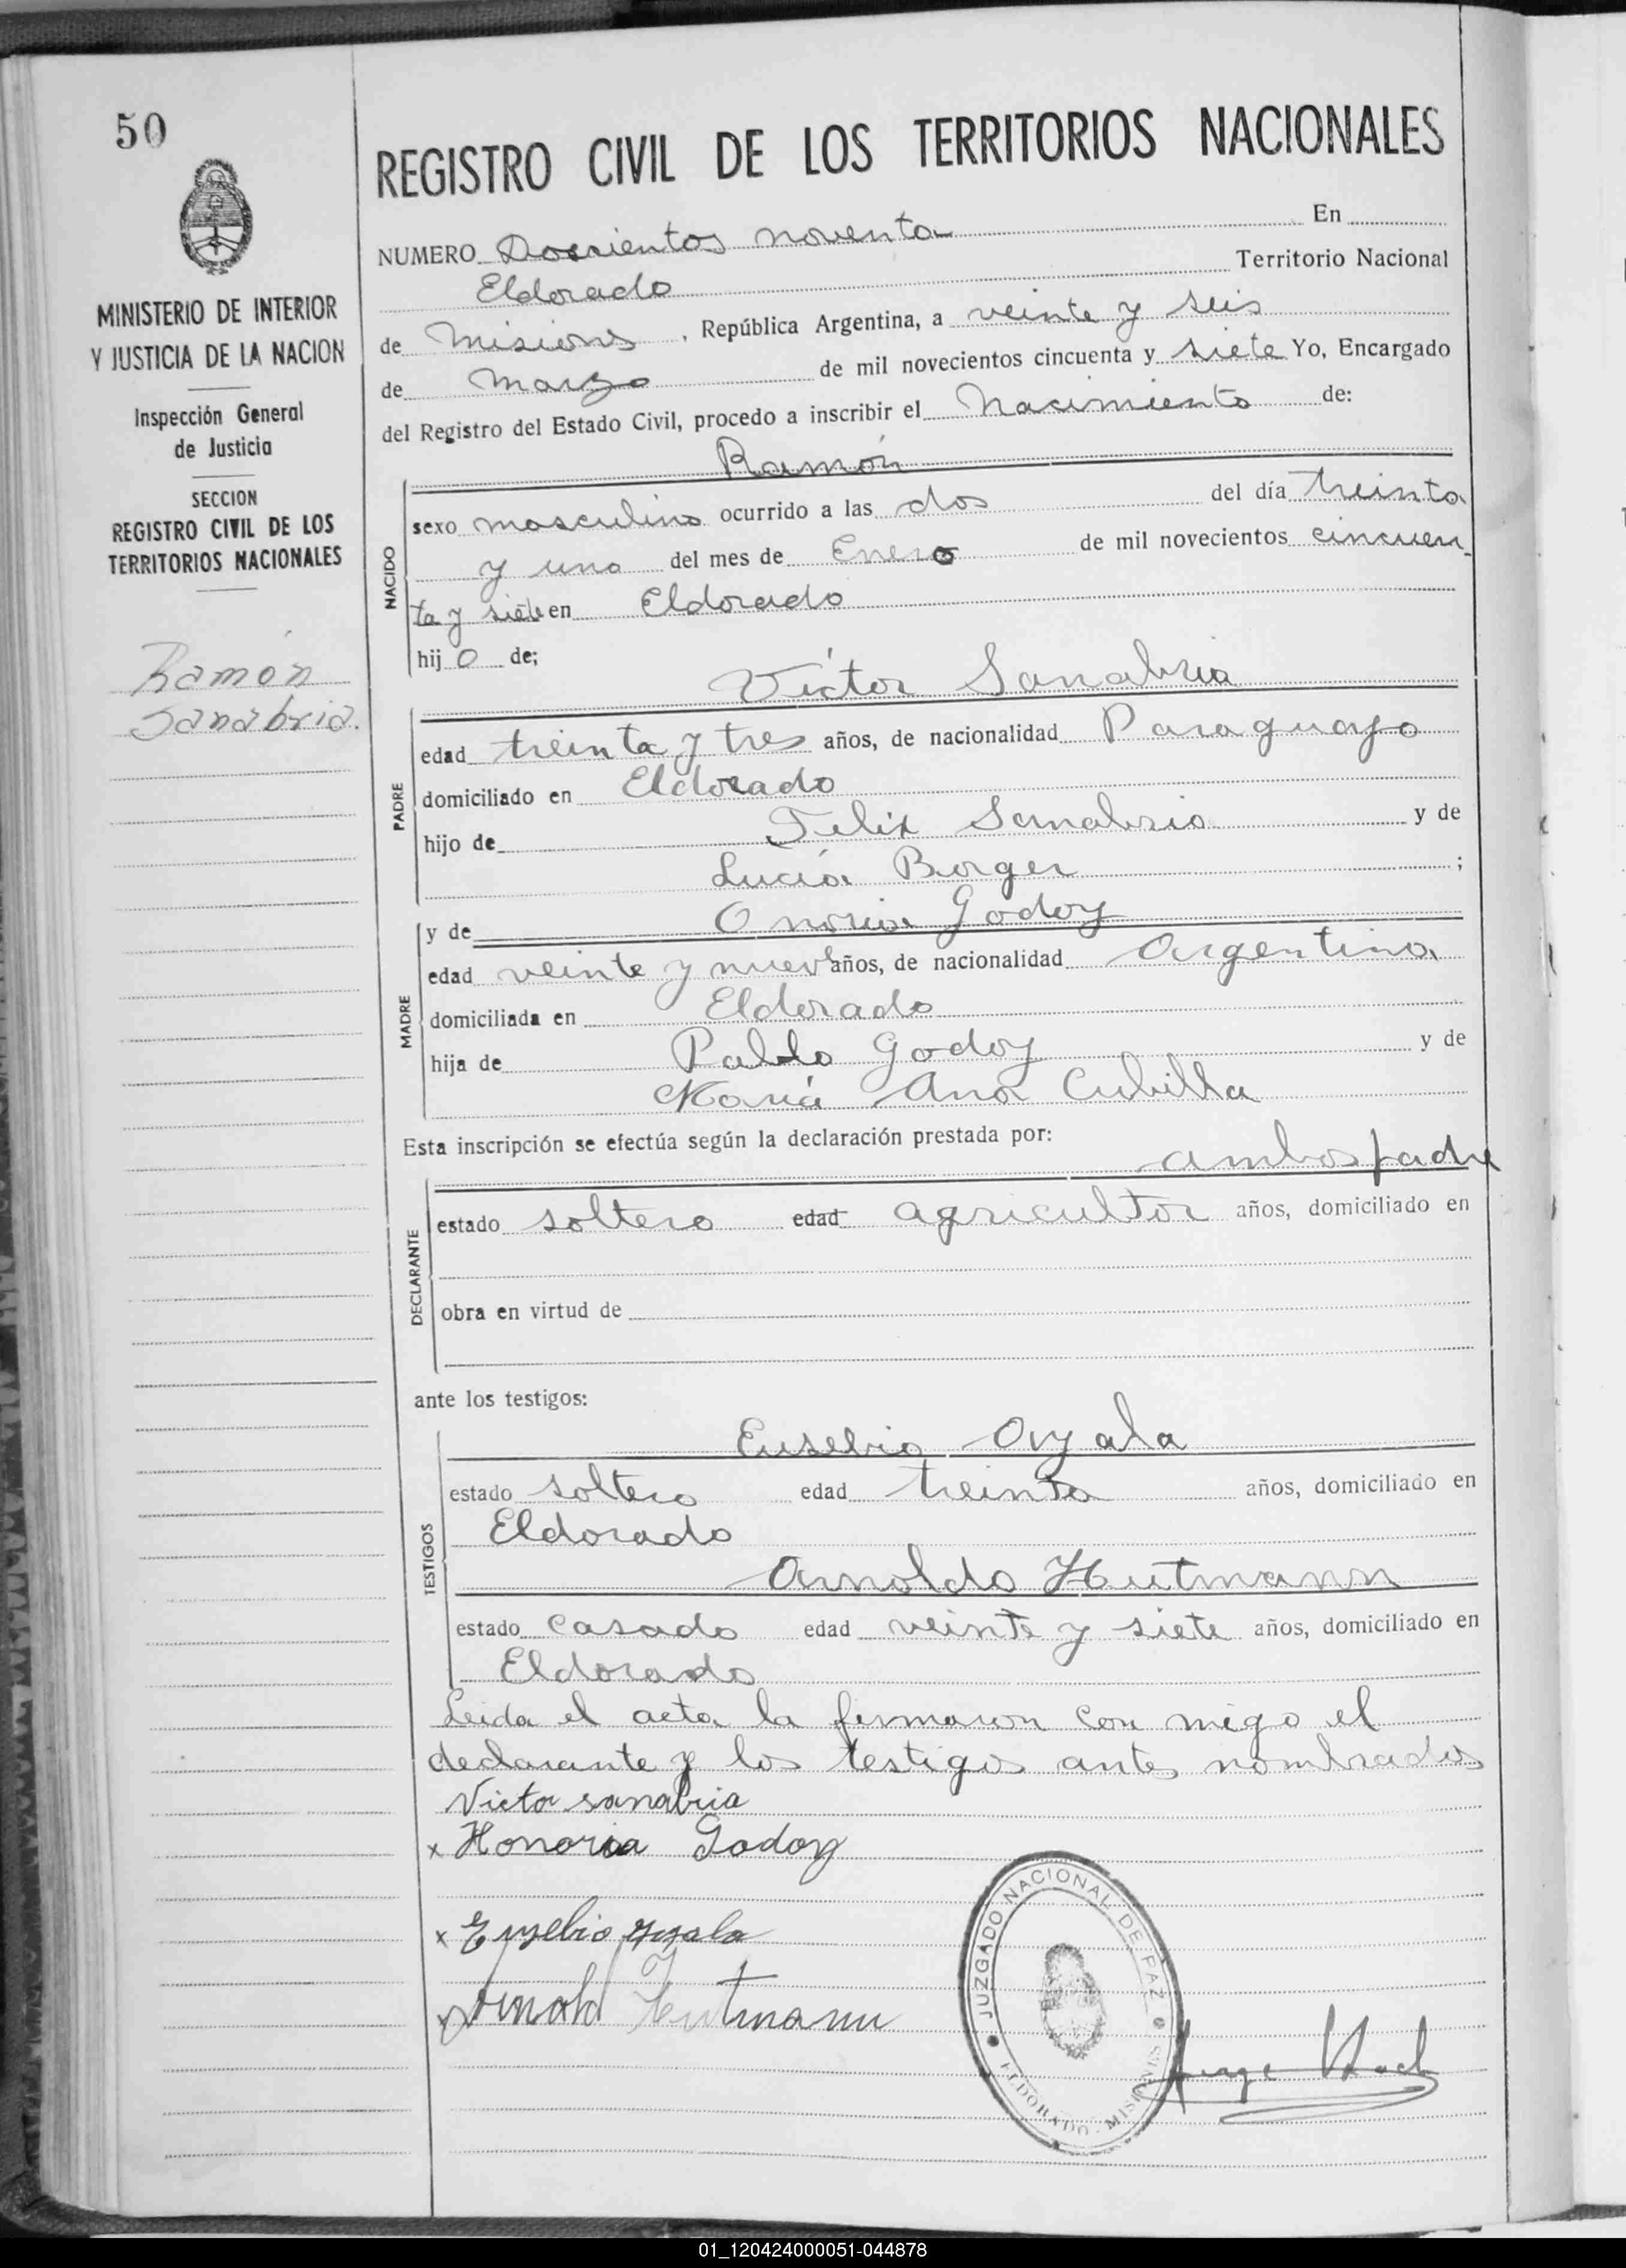 50
REGISTRO CIVIL DE LOS TERRITORIOS NACIONALES
MINISTERIO DE INTERIOR
Y JUSTICIA DE LA NACION
Inspección General
de Justicia
SECCION
REGISTRO CIVIL DE LOS
TERRITORIOS NACIONALES
Ramón
Sanabria.
NUMERO Doscientos noventa En
Eldorado Territorio Nacional
de Misiones, República Argentina, a veinte y seis
de Marzo de mil novecientos cincuenta y siete Yo, Encargado
del Registro del Estado Civil, procedo a inscribir el Nacimiento de:
Ramón
NACIDO
sexo masculino ocurrido a las dos del día treinta
y uno del mes de Enero de mil novecientos cincuen
ta y siete en Eldorado
hij o de;
Víctor Sanabria
PADRE
edad treinta y tres años, de nacionalidad Paraguayo
domiciliado en Eldorado
hijo de Felix Sanabria y de
Lucía Borger ;
y de Onoria Godoy
MADRE
edad veinte y nueve años, de nacionalidad Argentina
domiciliada en Eldorado
hija de Pablo Godoy y de
María Ana Cubilla
Esta inscripción se efectúa según la declaración prestada por:
ambos padre
DECLARANTE
estado soltero edad agricultor años, domiciliado en
obra en virtud de
ante los testigos:
Eusebio Ayala
TESTIGOS
estado soltero edad treinta años, domiciliado en
Eldorado
Arnoldo Hutmann
estado casado edad veinte y siete años, domiciliado en
Eldorado
Leida el acta la firmaron con migo el
declarante y los testigos antes nombrados
Victor sanabria
x Honoria Godoy
x Eusebio Ayala
x Arnold Hutmann
JUZGADO NACIONAL DE PAZ
ELDORADO - MISIONES
01_120424000051-044878